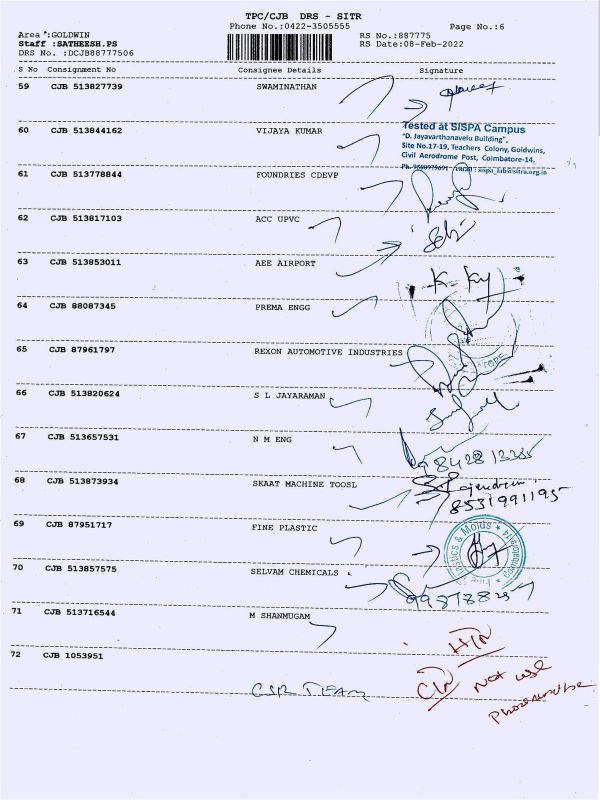 TPC/CJB DRS - SITR
Phone No.:0422-3505555 Page No.:6
Area :GOLDWIN RS No.:887775
Staff :SATHEESH.PS RS Date:08-Feb-2022
DRS No. :DCJB88777506
S No Consignment No Consignee Details Signature
59 CJB 513827739 SWAMINATHAN
60 CJB 513844162 VIJAYA KUMAR
Tested at SISPA Campus
"D. Jayavarthanavelu Building",
Site No.17-19, Teachers Colony, Goldwins,
Civil Aerodrome Post, Coimbatore-14,
61 CJB 513778844 FOUNDRIES CDEVP
62 CJB 513817103 ACC UPVC
63 CJB 513853011 AEE AIRPORT
64 CJB 88087345 PREMA ENGG
65 CJB 87961797 REXON AUTOMOTIVE INDUSTRIES
66 CJB 513820624 S L JAYARAMAN
67 CJB 513657531 N M ENG
68 CJB 513873934 SKAAT MACHINE TOOSL
8531991195
69 CJB 87951717 FINE PLASTIC
70 CJB 513857575 SELVAM CHEMICALS
71 CJB 513716544 M SHANMUGAM
72 CJB 1053951
CSR TEAM
Not use